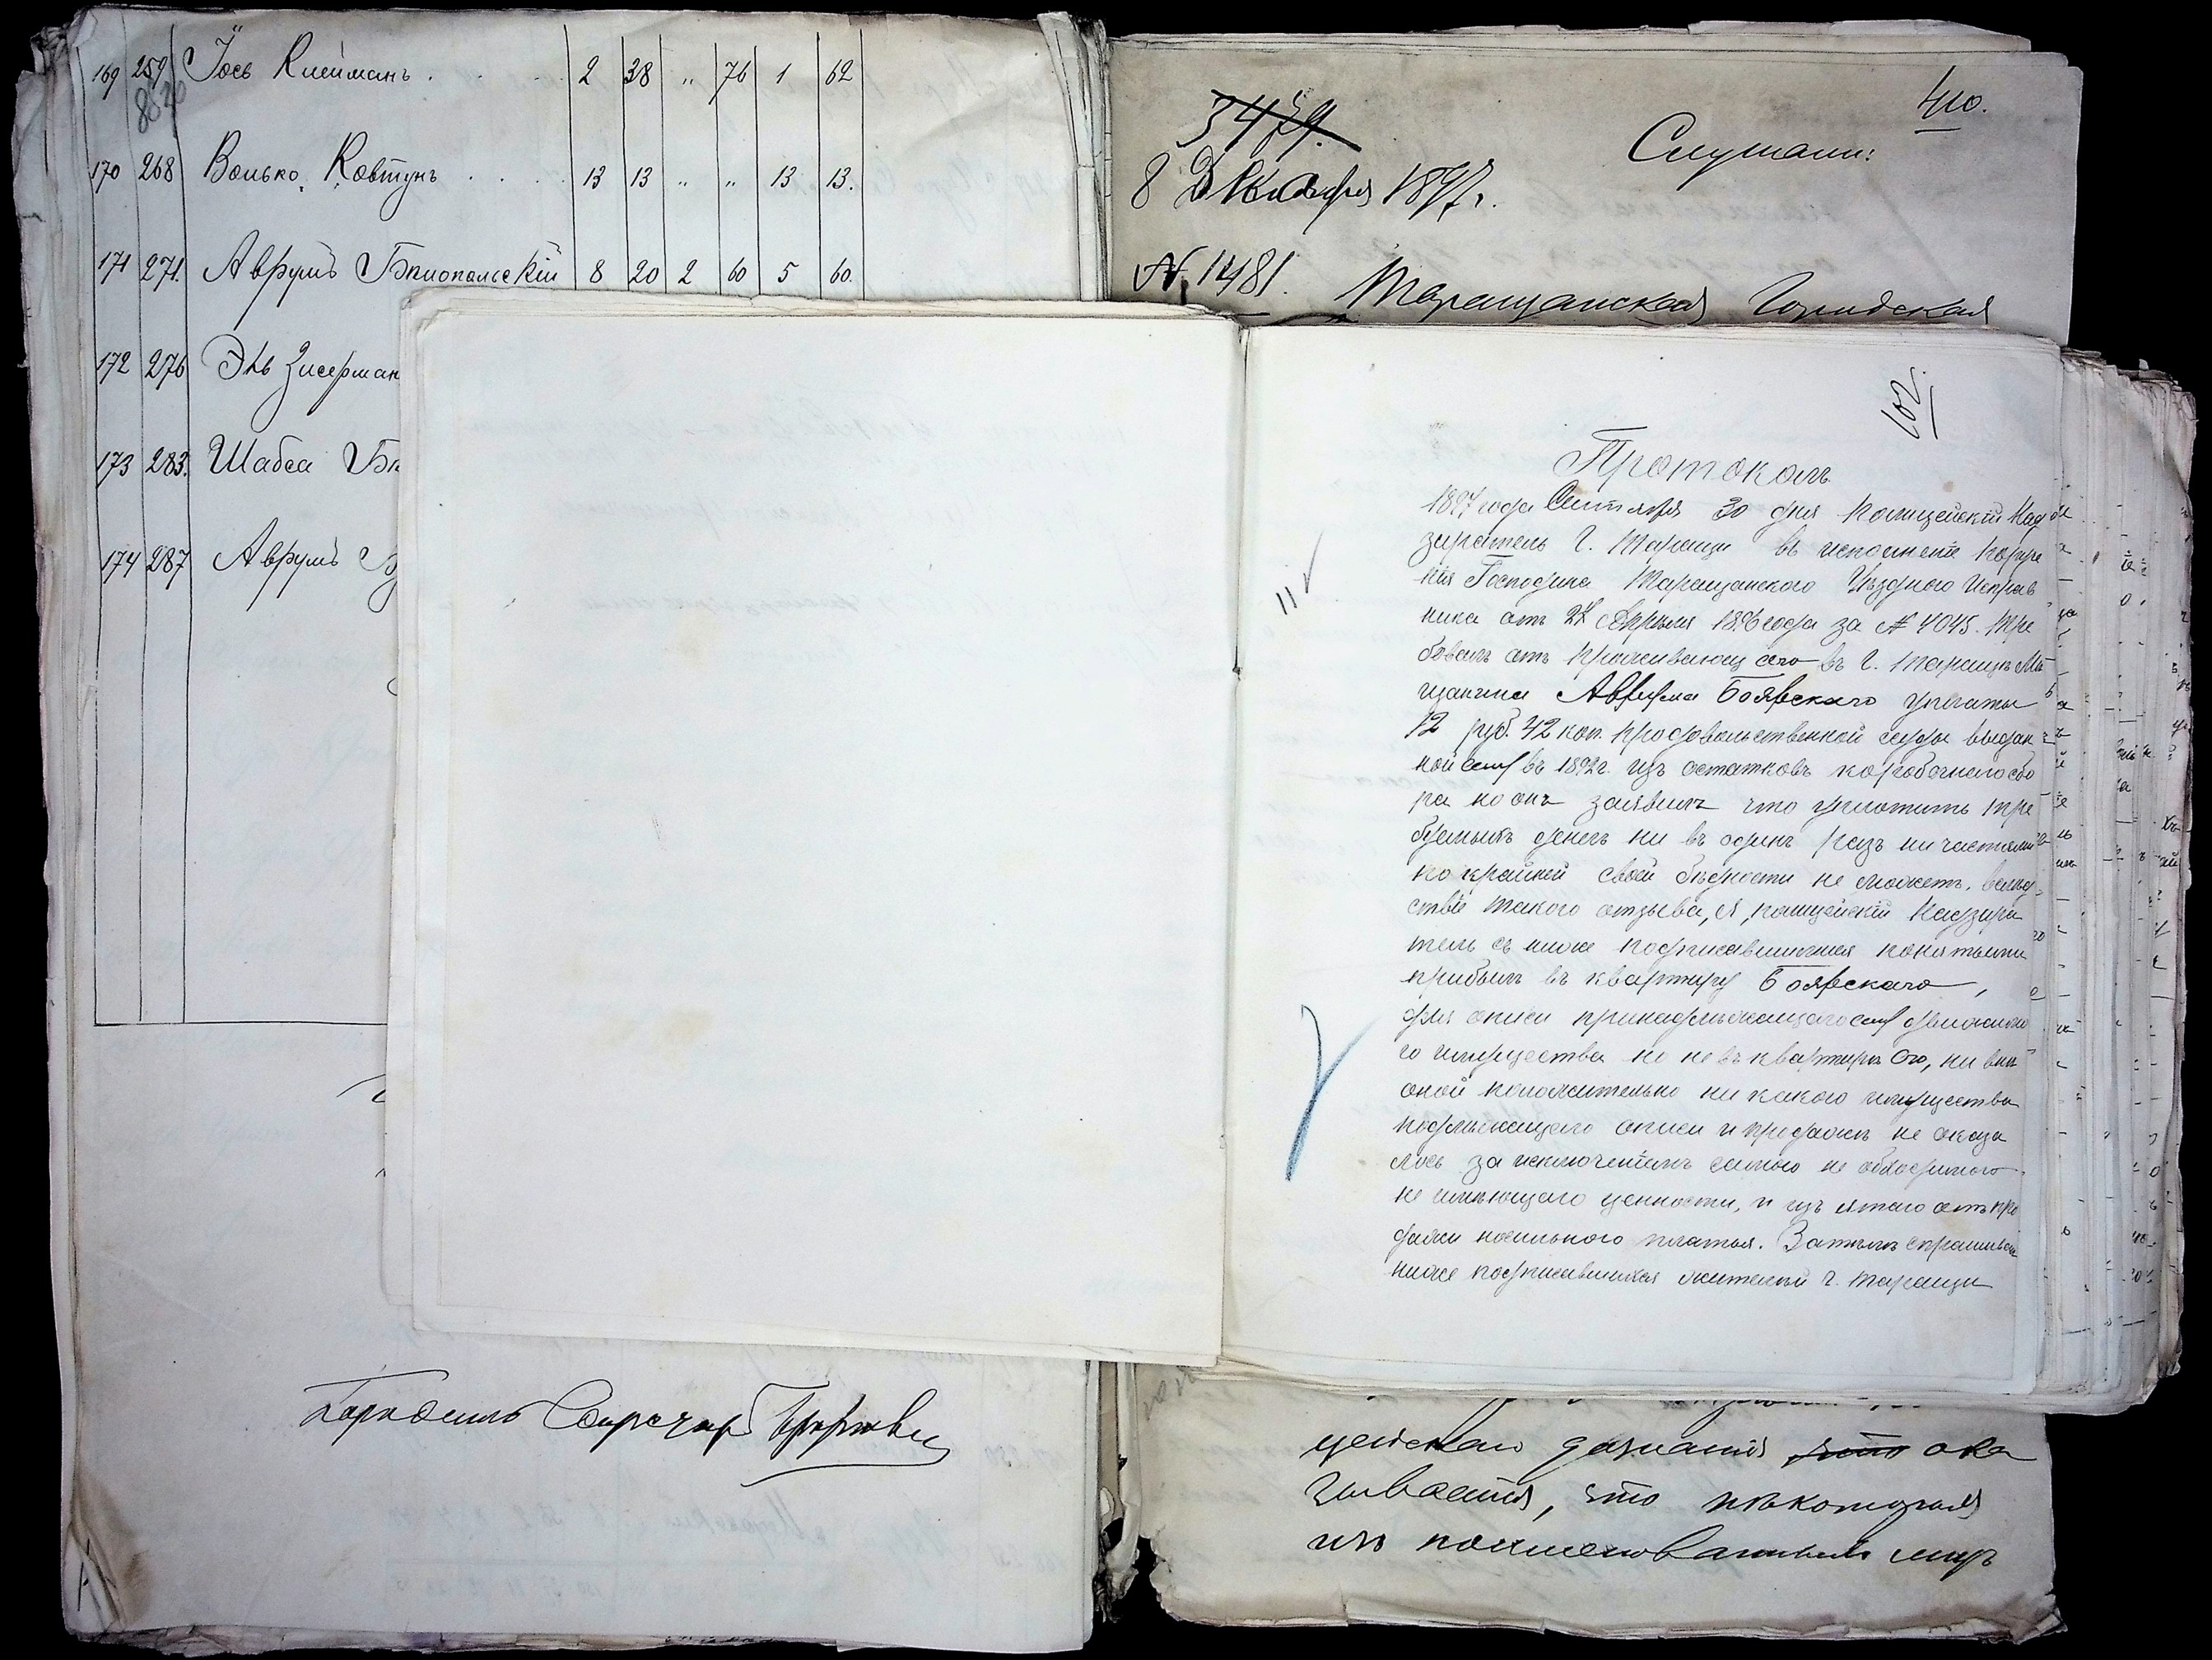 169 259 Іось Клейманъ . . . . 2 38 „ 76 1 62
170 268 Волько Ковтунъ . . . . 13 13 „ „ 13 13.
171 271. Аврумъ Бѣлопольскій 8 20 2 60 5 60.
172 276 Эль Зисерман
173 283. Шабса Бѣ
174 287 Аврумъ
Городской Староста
410.
3479.
Слушали:
8 Декабря 1897 г.
№ 1481. Таращанская Городская
102.
Протоколъ
1897 года Сентября 30 дня Полицейскій Над
зиратель г. Таращи въ исполненіе поруче
нія Господина Таращанскаго Уѣзднаго Исправ
ника отъ 24 Апрѣля 1896 года за № 4045. тре
бовалъ отъ проживающаго въ г. Таращѣ Мѣ
щанина Аврума Боярскаго уплаты
12 руб. 42 коп. продовольственной ссуды выдан
ной ему въ 1892 г. изъ остатковъ коробочнаго сбо
ра но онъ заявилъ что уплотить тре
буемыхъ денегъ ни въ одинъ разъ ни частями
по крайней своей бѣдности не можетъ. вслѣд
ствіе такого отзыва, я, полицейскій Надзира
тель съ ниже подписавшимися понятыми
прибылъ въ квартиру Боярскаго,
для описи принадлежащаго ему движима
го имущества но не въ квартирѣ его, ни внѣ
оной положительно ни какого имущества
подлежащаго описи и продажѣ не оказа
лось за исключеніемъ самого не обходимого
не имѣющаго ценности, и изъятаго отъ про
дажи носильного платья. Затѣмъ спрашивал
ниже подписавшихся жителей г. Таращи
цейскаго дознанія что ока
зывается, что нѣкоторыя
изъ поименованныхъ лицъ